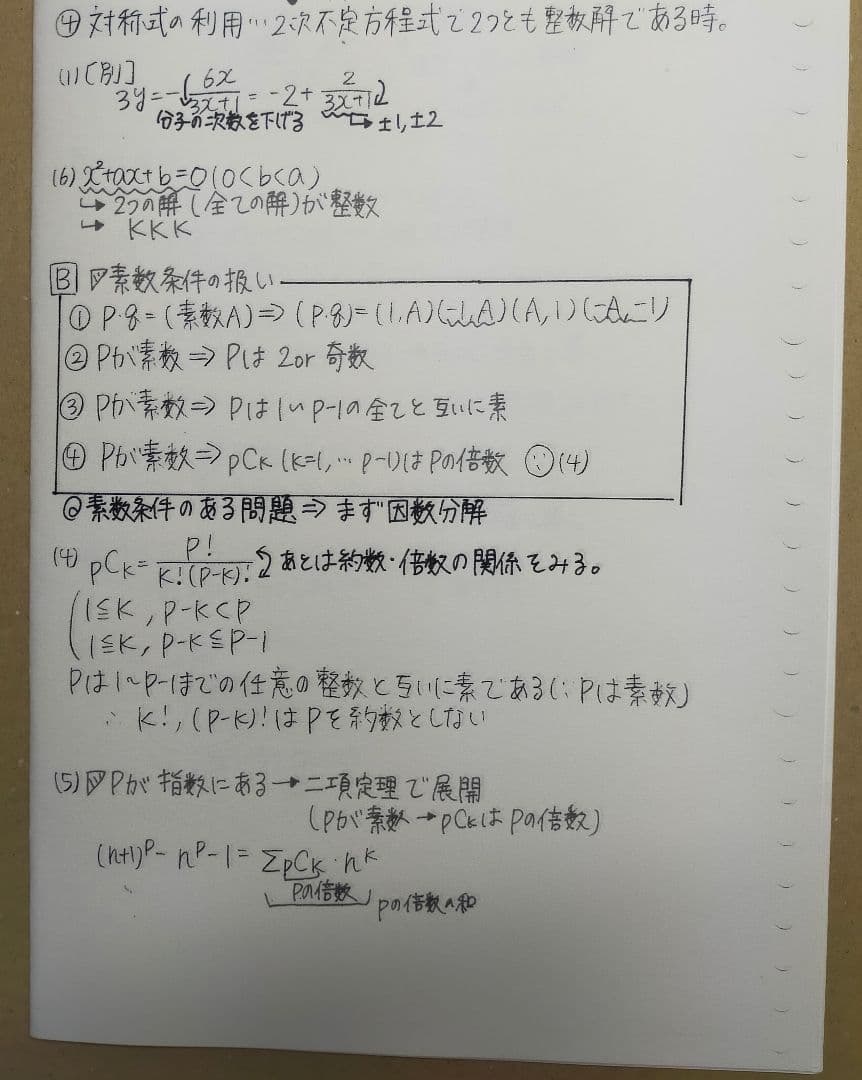 ④ 対称式の利用…2次不定方程式で2つとも整数解である時。
(1)[別]
3y=-6x/(3x+1)=-2+2/(3x+1)
分子の次数を下げる ↳ ±1,±2
(6) x²+ax+b=0(0<b<a)
↳ 2つの解(全ての解)が整数
↳ KKK
B 素数条件の扱い
① P・q=(素数A)⇒(P・q)=(1,A)(-1,-A)(A,1)(-A,-1)
② Pが素数⇒Pは2or奇数
③ Pが素数⇒Pは1~P-1の全てと互いに素
④ Pが素数⇒pCk(k=1,…P-1)はPの倍数 ∵(4)
◎素数条件のある問題⇒まず因数分解
(4) pCk=P!/(K!(P-K)!) あとは約数・倍数の関係をみる。
1≦K,P-K<P
1≦K,P-K≦P-1
Pは1~P-1までの任意の整数と互いに素である(∵Pは素数)
∴ K!,(P-K)!はPを約数としない
(5) Pが指数にある→二項定理で展開
(Pが素数→pCkはPの倍数)
(n+1)ᴾ-nᴾ-1=ΣpCk・nᵏ
Pの倍数
Pの倍数の和